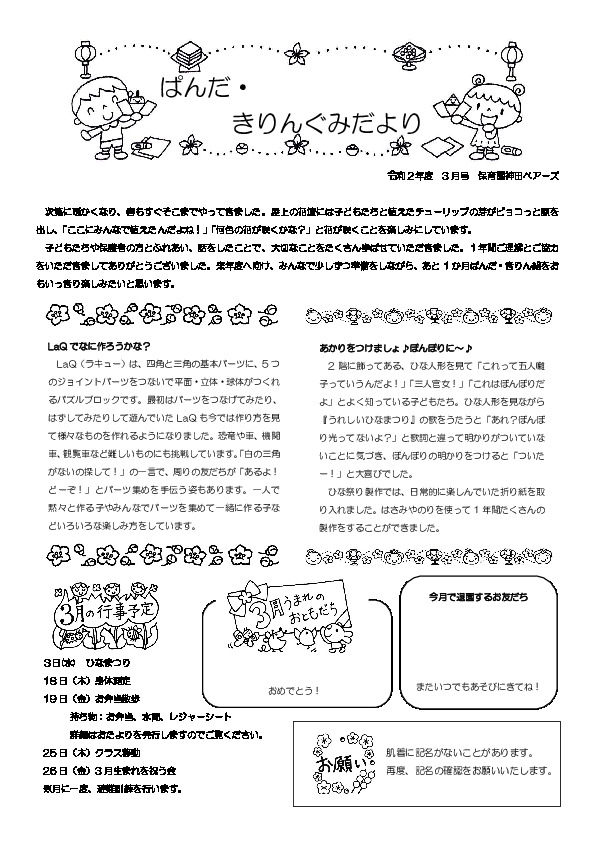 ぱんだ・
きりんぐみだより
令和2年度 3月号 保育園神田ベアーズ
次第に暖かくなり、春もすぐそこまでやってきました。屋上の花壇には子どもたちと植えたチューリップの芽がピョコっと顔を
出し、「ここにみんなで植えたんだよね！」「何色の花が咲くかな？」と花が咲くことを楽しみにしています。
子どもたちや保護者の方とふれあい、話をしたことで、大切なことをたくさん学ばせていただきました。1年間ご理解とご協力
をいただきましてありがとうございました。来年度へ向け、みんなで少しずつ準備をしながら、あと1か月ぱんだ・きりん組をお
もいっきり楽しみたいと思います。
LaQでなに作ろうかな？
LaQ（ラキュー）は、四角と三角の基本パーツに、5つ
のジョイントパーツをつないで平面・立体・球体がつくれ
るパズルブロックです。最初はパーツをつなげてみたり、
はずしてみたりして遊んでいたLaQも今では作り方を見
て様々なものを作れるようになりました。恐竜や車、機関
車、観覧車など難しいものにも挑戦しています。「白の三角
がないの探して！」の一言で、周りの友だちが「あるよ！
どーぞ！」とパーツ集めを手伝う姿もあります。一人で
黙々と作る子やみんなでパーツを集めて一緒に作る子な
どいろいろな楽しみ方をしています。
あかりをつけましょ♪ぼんぼりに～♪
2階に飾ってある、ひな人形を見て「これって五人囃
子っていうんだよ！」「三人官女！」「これはぼんぼりだ
よ」とよく知っている子どもたち。ひな人形を見ながら
『うれしいひなまつり』の歌をうたうと「あれ？ぼんぼ
り光ってないよ？」と歌詞と違って明かりがついていな
いことに気づき、ぼんぼりの明かりをつけると「ついた
ー！」と大喜びでした。
ひな祭り製作では、日常的に楽しんでいた折り紙を取
り入れました。はさみやのりを使って1年間たくさんの
製作をすることができました。
3月の行事予定
3日(水) ひなまつり
18日（木）身体測定
19日（金）お弁当散歩
持ち物：お弁当、水筒、レジャーシート
詳細はおたよりを発行しますのでご覧ください。
25日（木）クラス移動
26日（金）3月生まれを祝う会
※月に一度、避難訓練を行います。
3月うまれの
おともだち
おめでとう！
今月で退園するお友だち
またいつでもあそびにきてね！
お願い
肌着に記名がないことがあります。
再度、記名の確認をお願いいたします。